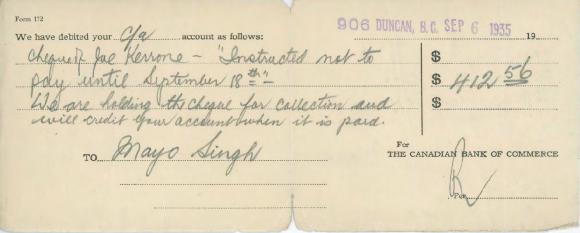 Form 172
906 DUNCAN, B.C. SEP 6 1935 19
We have debited your c/a account as follows:
Cheque Joe Kerrone - "Instructed not to
pay until September 18th"
We are holding this cheque for collection and
will credit your account when it is paid.
$
$ 412 56
$
TO Mayo Singh
For
THE CANADIAN BANK OF COMMERCE
Per